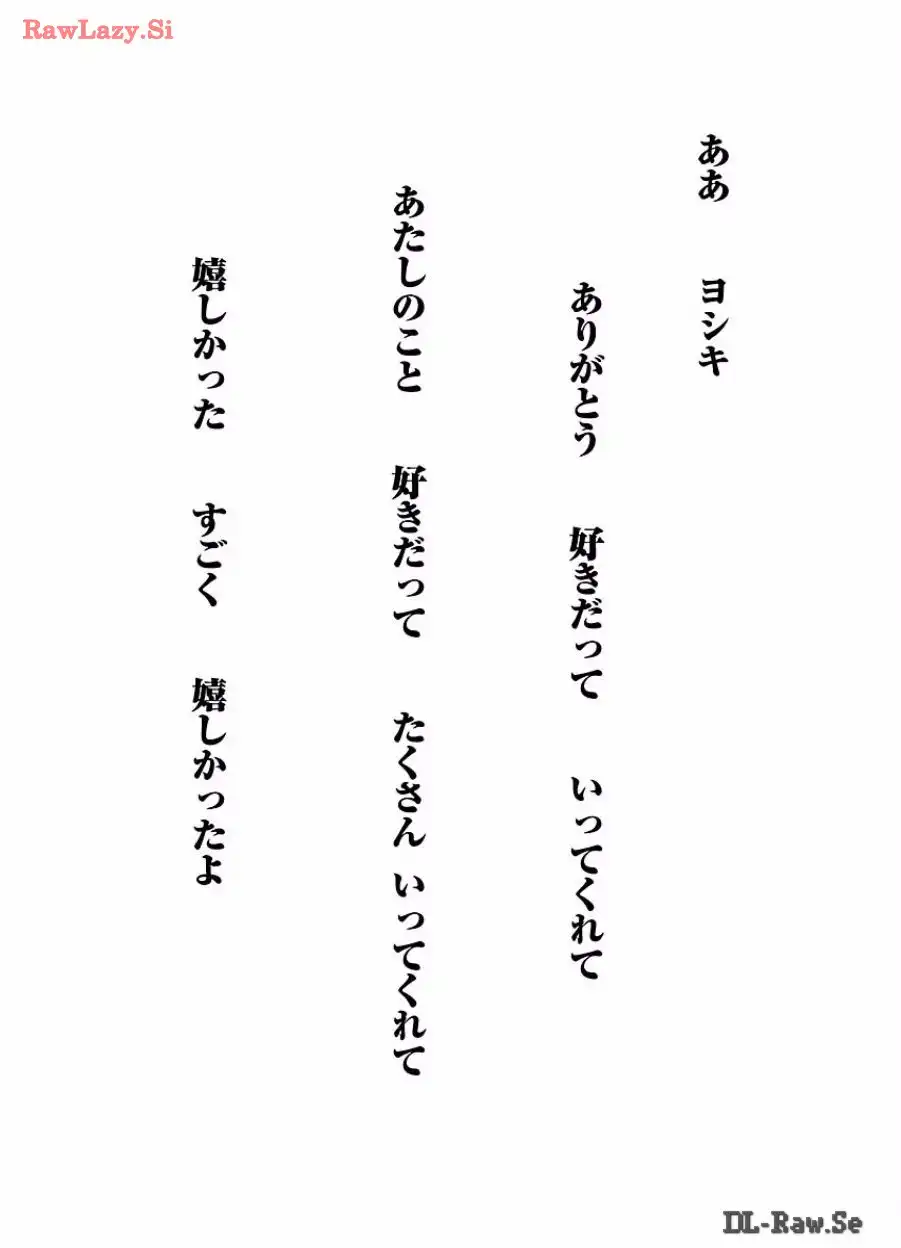 RawLazy.Si
ああ　ヨシキ
ありがとう　好きだって　いってくれて
あたしのこと　好きだって　たくさん いってくれて
嬉しかった　すごく　嬉しかったよ
DL-Raw.Se